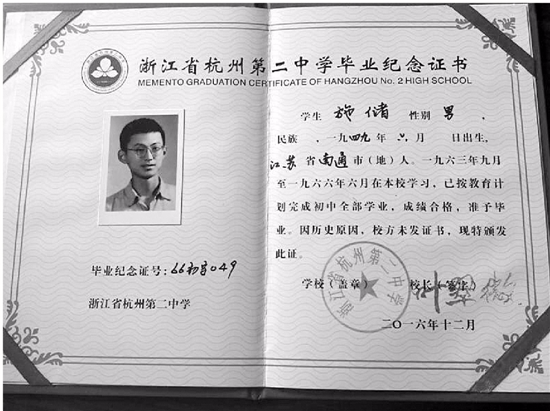 浙江省杭州第二中学毕业纪念证书
MEMENTO GRADUATION CERTIFICATE OF HANGZHOU No.2 HIGH SCHOOL
毕业纪念证号：66初字049
浙江省杭州第二中学
学生 施储 性别 男 ，
民族 ，一九四九年 六 月 日出生，
江苏省南通市（地）人。一九六三年九月
至一九六六年六月在本校学习，已按教育计
划完成初中全部学业，成绩合格，准予毕
业。因历史原因，校方未发证书，现特颁发
此证。
学校（盖章） 校长（签名）
浙江省杭州第二中学
二〇一六年十二月